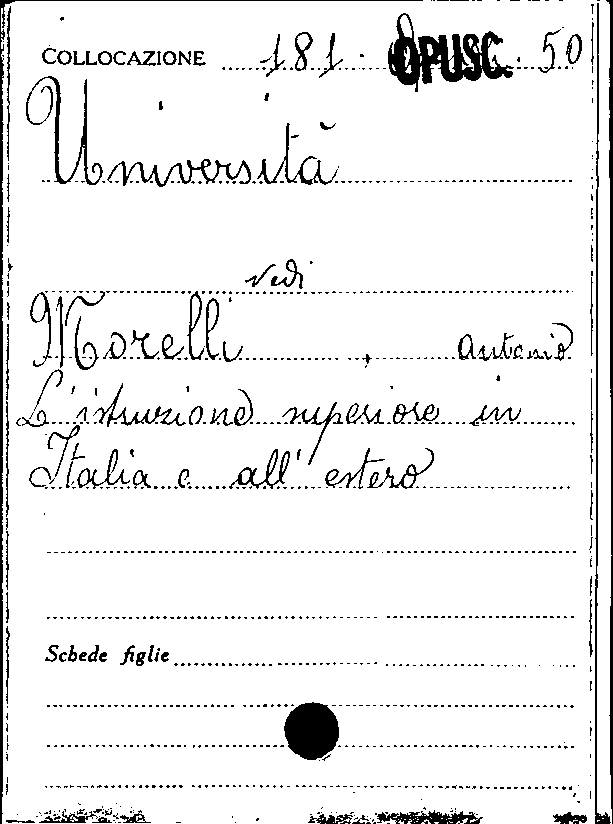 COLLOCAZIONE 181. OPUSC. 50
Università
vedi
Morelli, Antonio
L'istruzione superiore in
Italia e all'estero
Schede figlie